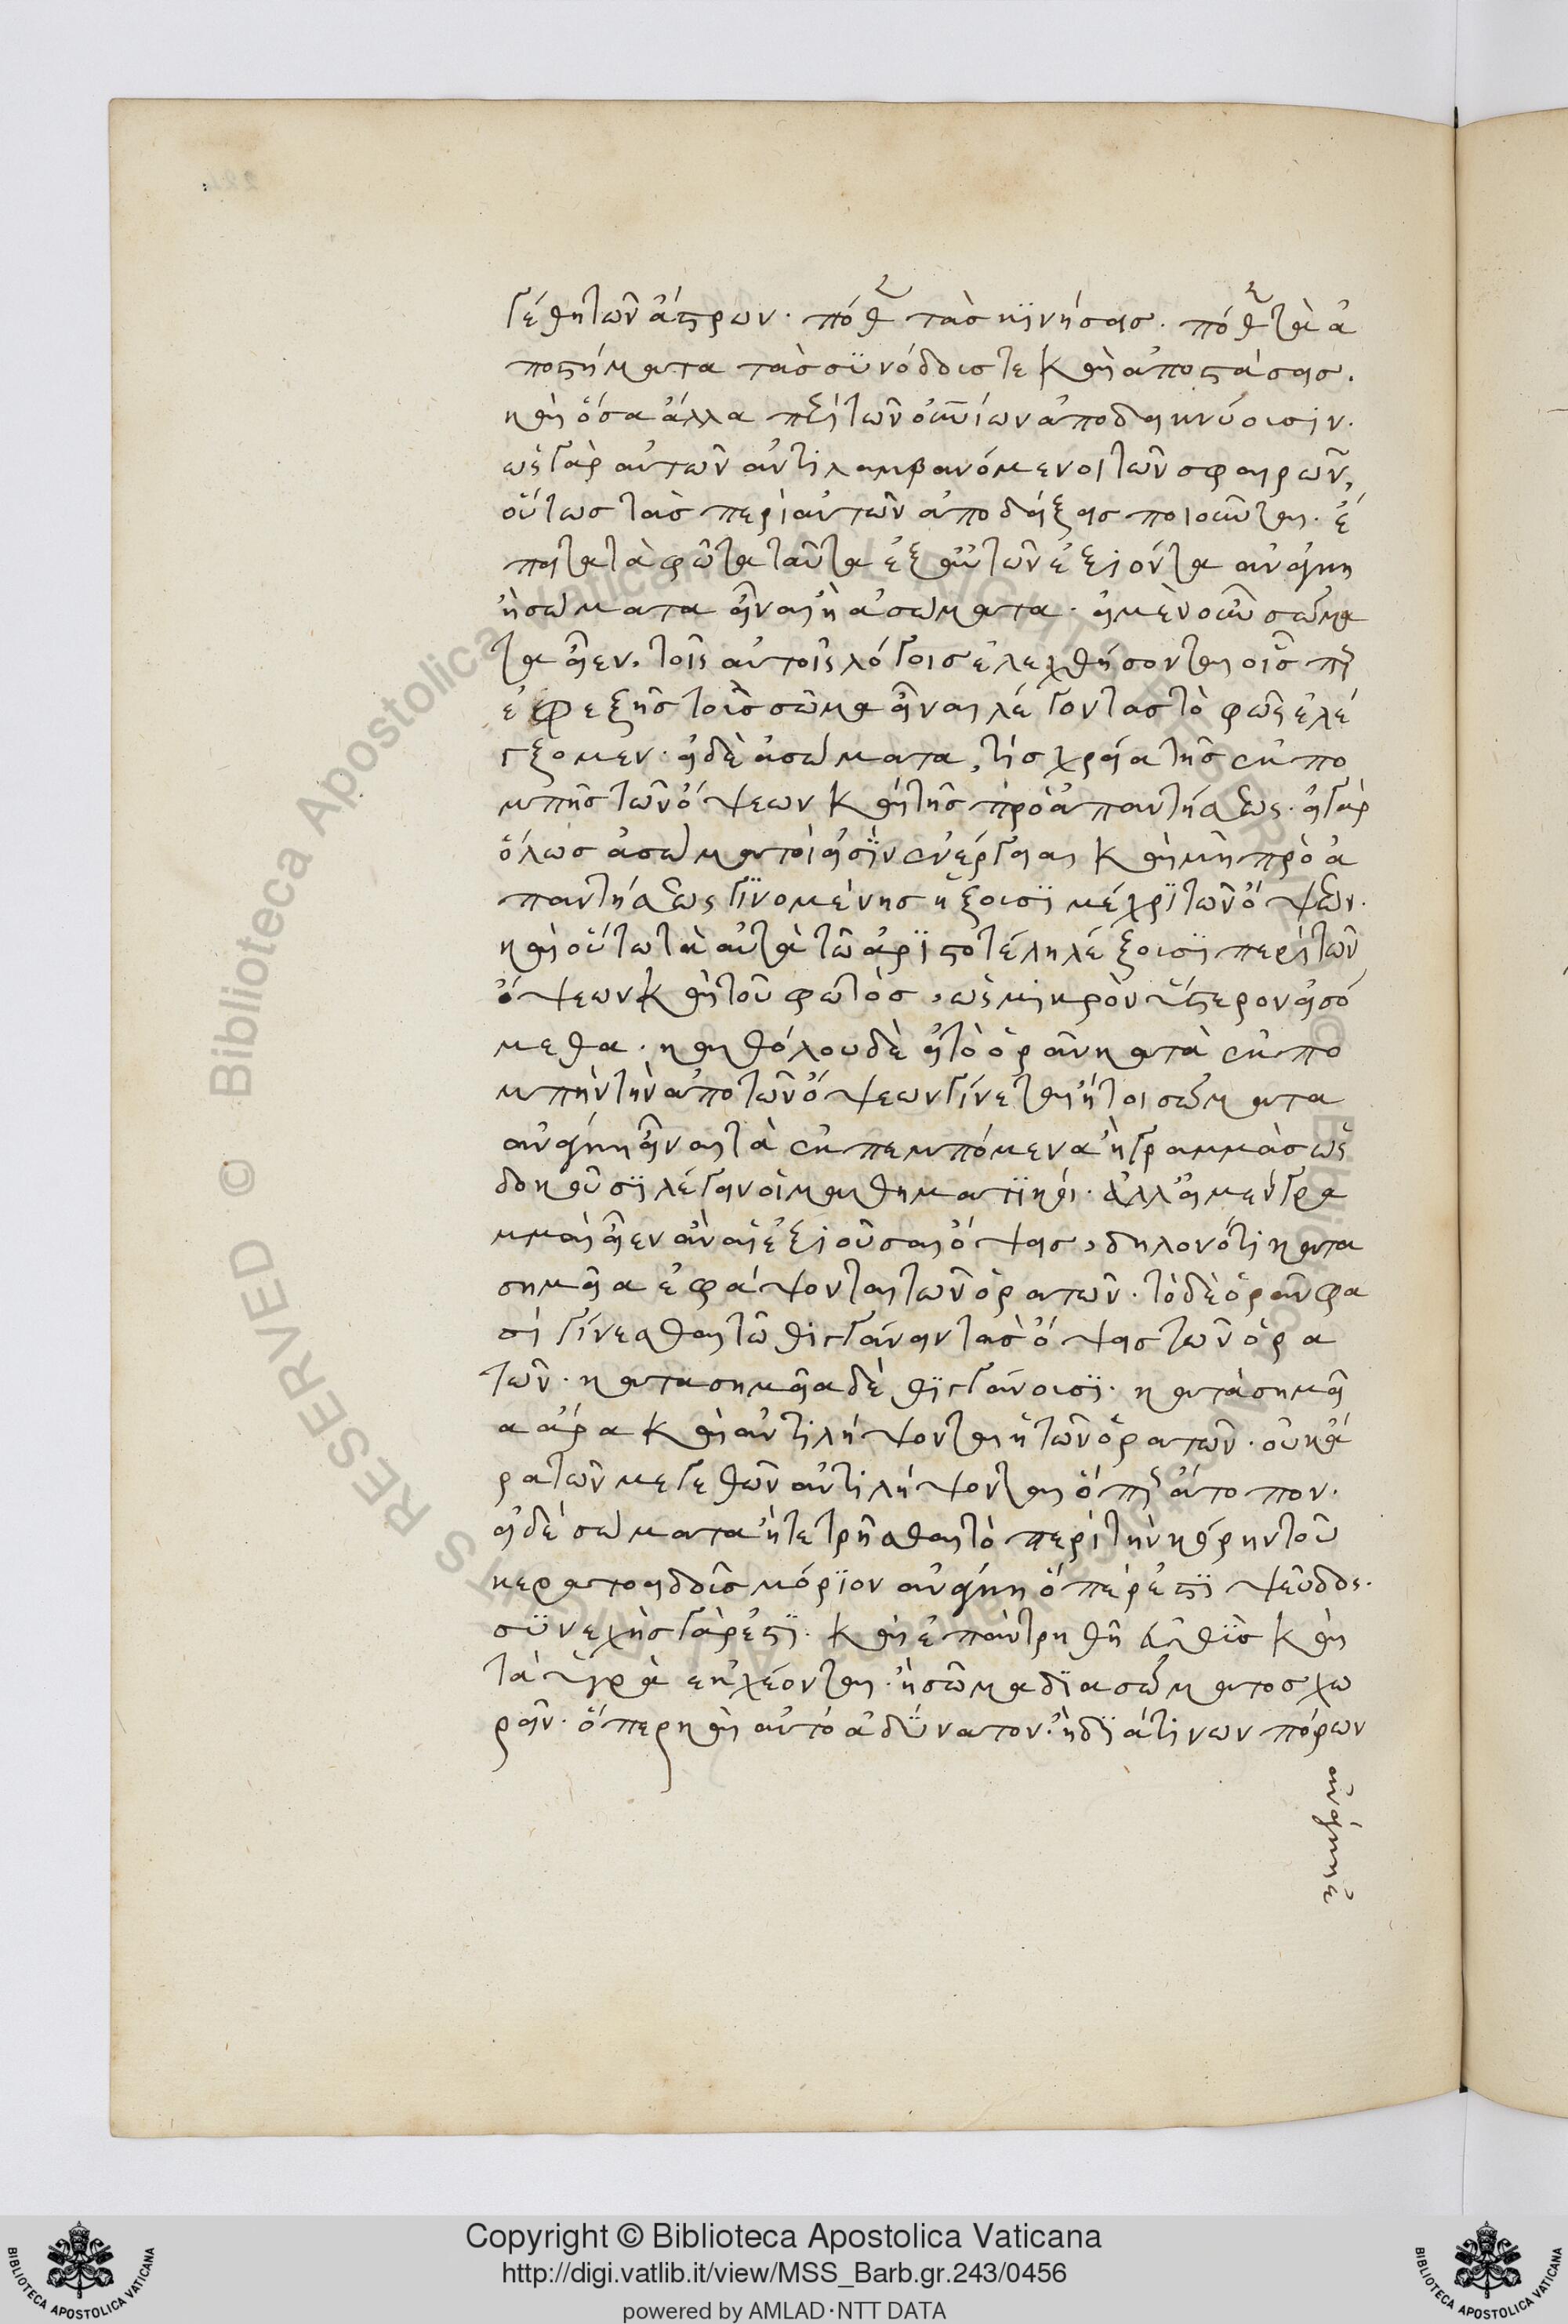 γέθη τῶν ἄστρων. πόθεν τὰς κϊνήσεις. πόθεν τὰ ἀ
ποστήματα τὰς συνόδους τε καὶ ἀποστάσεις.
καὶ ὅσα ἄλλα περὶ τῶν οὐρανίων ἀποδεικνύουσιν.
ὡς γὰρ αὐτῶν ἀντιλαμβανόμενοι τῶν σφαιρῶν,
οὕτως τὰς περὶ αὐτῶν ἀποδείξεις ποιοῦνται. ἔ
πειτα τὰ φῶτα ταῦτα ἐξ αὐτῶν ἐξιόντα ἀνάγκη
ἢ σώματα εἶναι ἢ ἀσώματα. εἰ μὲν οὖν σώμα
τα εἶεν, τοῖς αὐτοῖς λόγοις ἐλεχθήσονται οἷσπερ
ἐφεξῆς τοῖς σῶμα εἶναι λέγοντας τὸ φῶς ἐλέ
γξομεν. εἰ δὲ ἀσώματα, τίς χρεία τῆς ἐκπο
μπῆς τῶν ὄψεων καὶ τῆς προαπαντήσεως. εἰ γὰρ
ὅλως ἀσώματοι εἰσὶν ἐνέργειαι καὶ μὴ προα
παντήσεως γϊνομένης ἥξουσϊ μέχρϊ τῶν ὄψεων.
καὶ οὕτω τὰ αὐτὰ τῷ ἀρϊστοτέλη λέξουσϊ περὶ τῶν
ὄψεων καὶ τοῦ φωτὸς, ὡς μικρὸν ὕστερον εἰσό
μεθα. καθόλου δὲ εἰ τὸ ὁρᾶν κατὰ ἐκπο
μπὴν τὴν ἀπὸ τῶν ὄψεων γίνεται ἤτοι σώματα
ἀνάγκη εἶναι τὰ ἐκπεμπόμενα ἢ γραμμὰς ὡς
δοκοῦσϊ λέγειν οἱ μαθηματϊκοί. ἀλλ' εἰ μὲν γρα
μμαὶ εἶεν ἂν αἱ ἐξιοῦσαι ὄψεις, δηλονότι κατα
σημεῖα ἐφάψονται τῶν ὁρατῶν. τὸ δὲ ὁρᾶν φα
σὶ γίνεσθαι τῷ θιγγάνειν τὰς ὄψεις τῶν ὁρα
τῶν. κατασημεῖα δὲ θϊγγάνουσϊ. κατὰ σημεῖ
α ἄρα καὶ ἀντιλήψονται τῶν ὁρατῶν. οὐκ ἄ
ρα τῶν μεγεθῶν ἀντιλήψονται ὅπερ ἄτοπον.
εἰ δὲ σώματα ἢ τετρῆσθαι τὸ περὶ τὴν κόρην τοῦ
κερατοειδοῦς μόρϊον ἀνάγκη ὅπερ ἐστϊ ψεῦδος.
συνεχὴς γὰρ ἐστϊ. καὶ ἐπὰν τρηθῆ εὐθὺς καὶ
τὰ ὑγρὰ ἐκχέονται. ἢ σῶμα δϊα σώματος χω
ρεῖν. ὅπερ καὶ αὐτὸ ἀδύνατον. ἢ δϊά τινων πόρων
ἀνάγκη ἐ